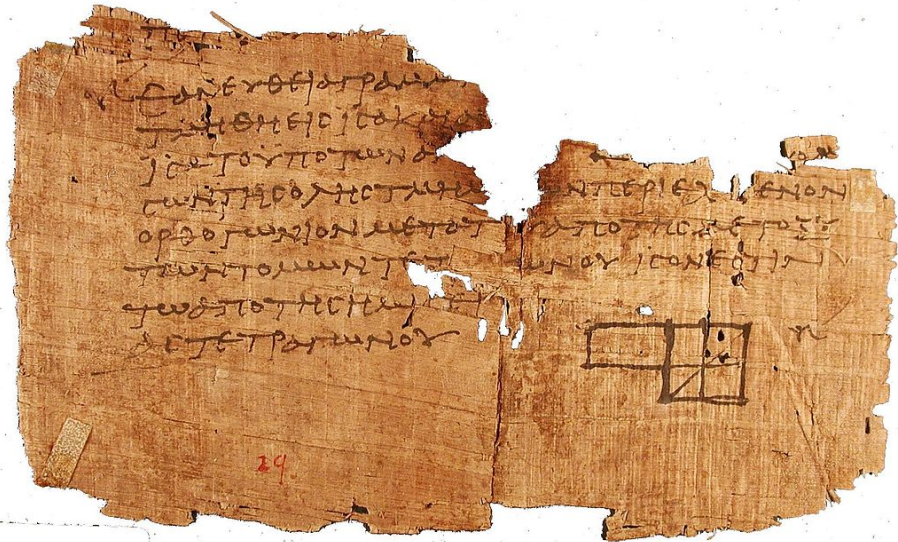 ΕΑΝ ΕΥΘΕΙΑ ΓΡΑΜΜ
ΤΜΗΘΗ ΕΙϹ ΙϹΑ ΚΑΙ
ΙϹΑ ΤΟ ΥΠΟ ΤΩΝ
ϹΩΝ ΤΗϹ ΟΛΗϹ ΤΜΗΜ ΩΝ ΠΕΡΙΕΧ ΜΕΝΟΝ
ΟΡΘΟΓΩΝΙΟΝ ΜΕΤΑ ΤΟΥ ΑΠΟ ΤΗϹ ΜΕΤΟΞΥ
ΤΩΝ ΤΟΜΩΝ ΤΕΤ ΩΝΟΥ ΙϹΟΝ ΕϹΤΙΝ
ΤΩ ΑΠΟ ΤΗϹ ΗΜΙϹΕΙ
ΑϹ ΤΕΤΡΑΓΩΝΟΥ
29